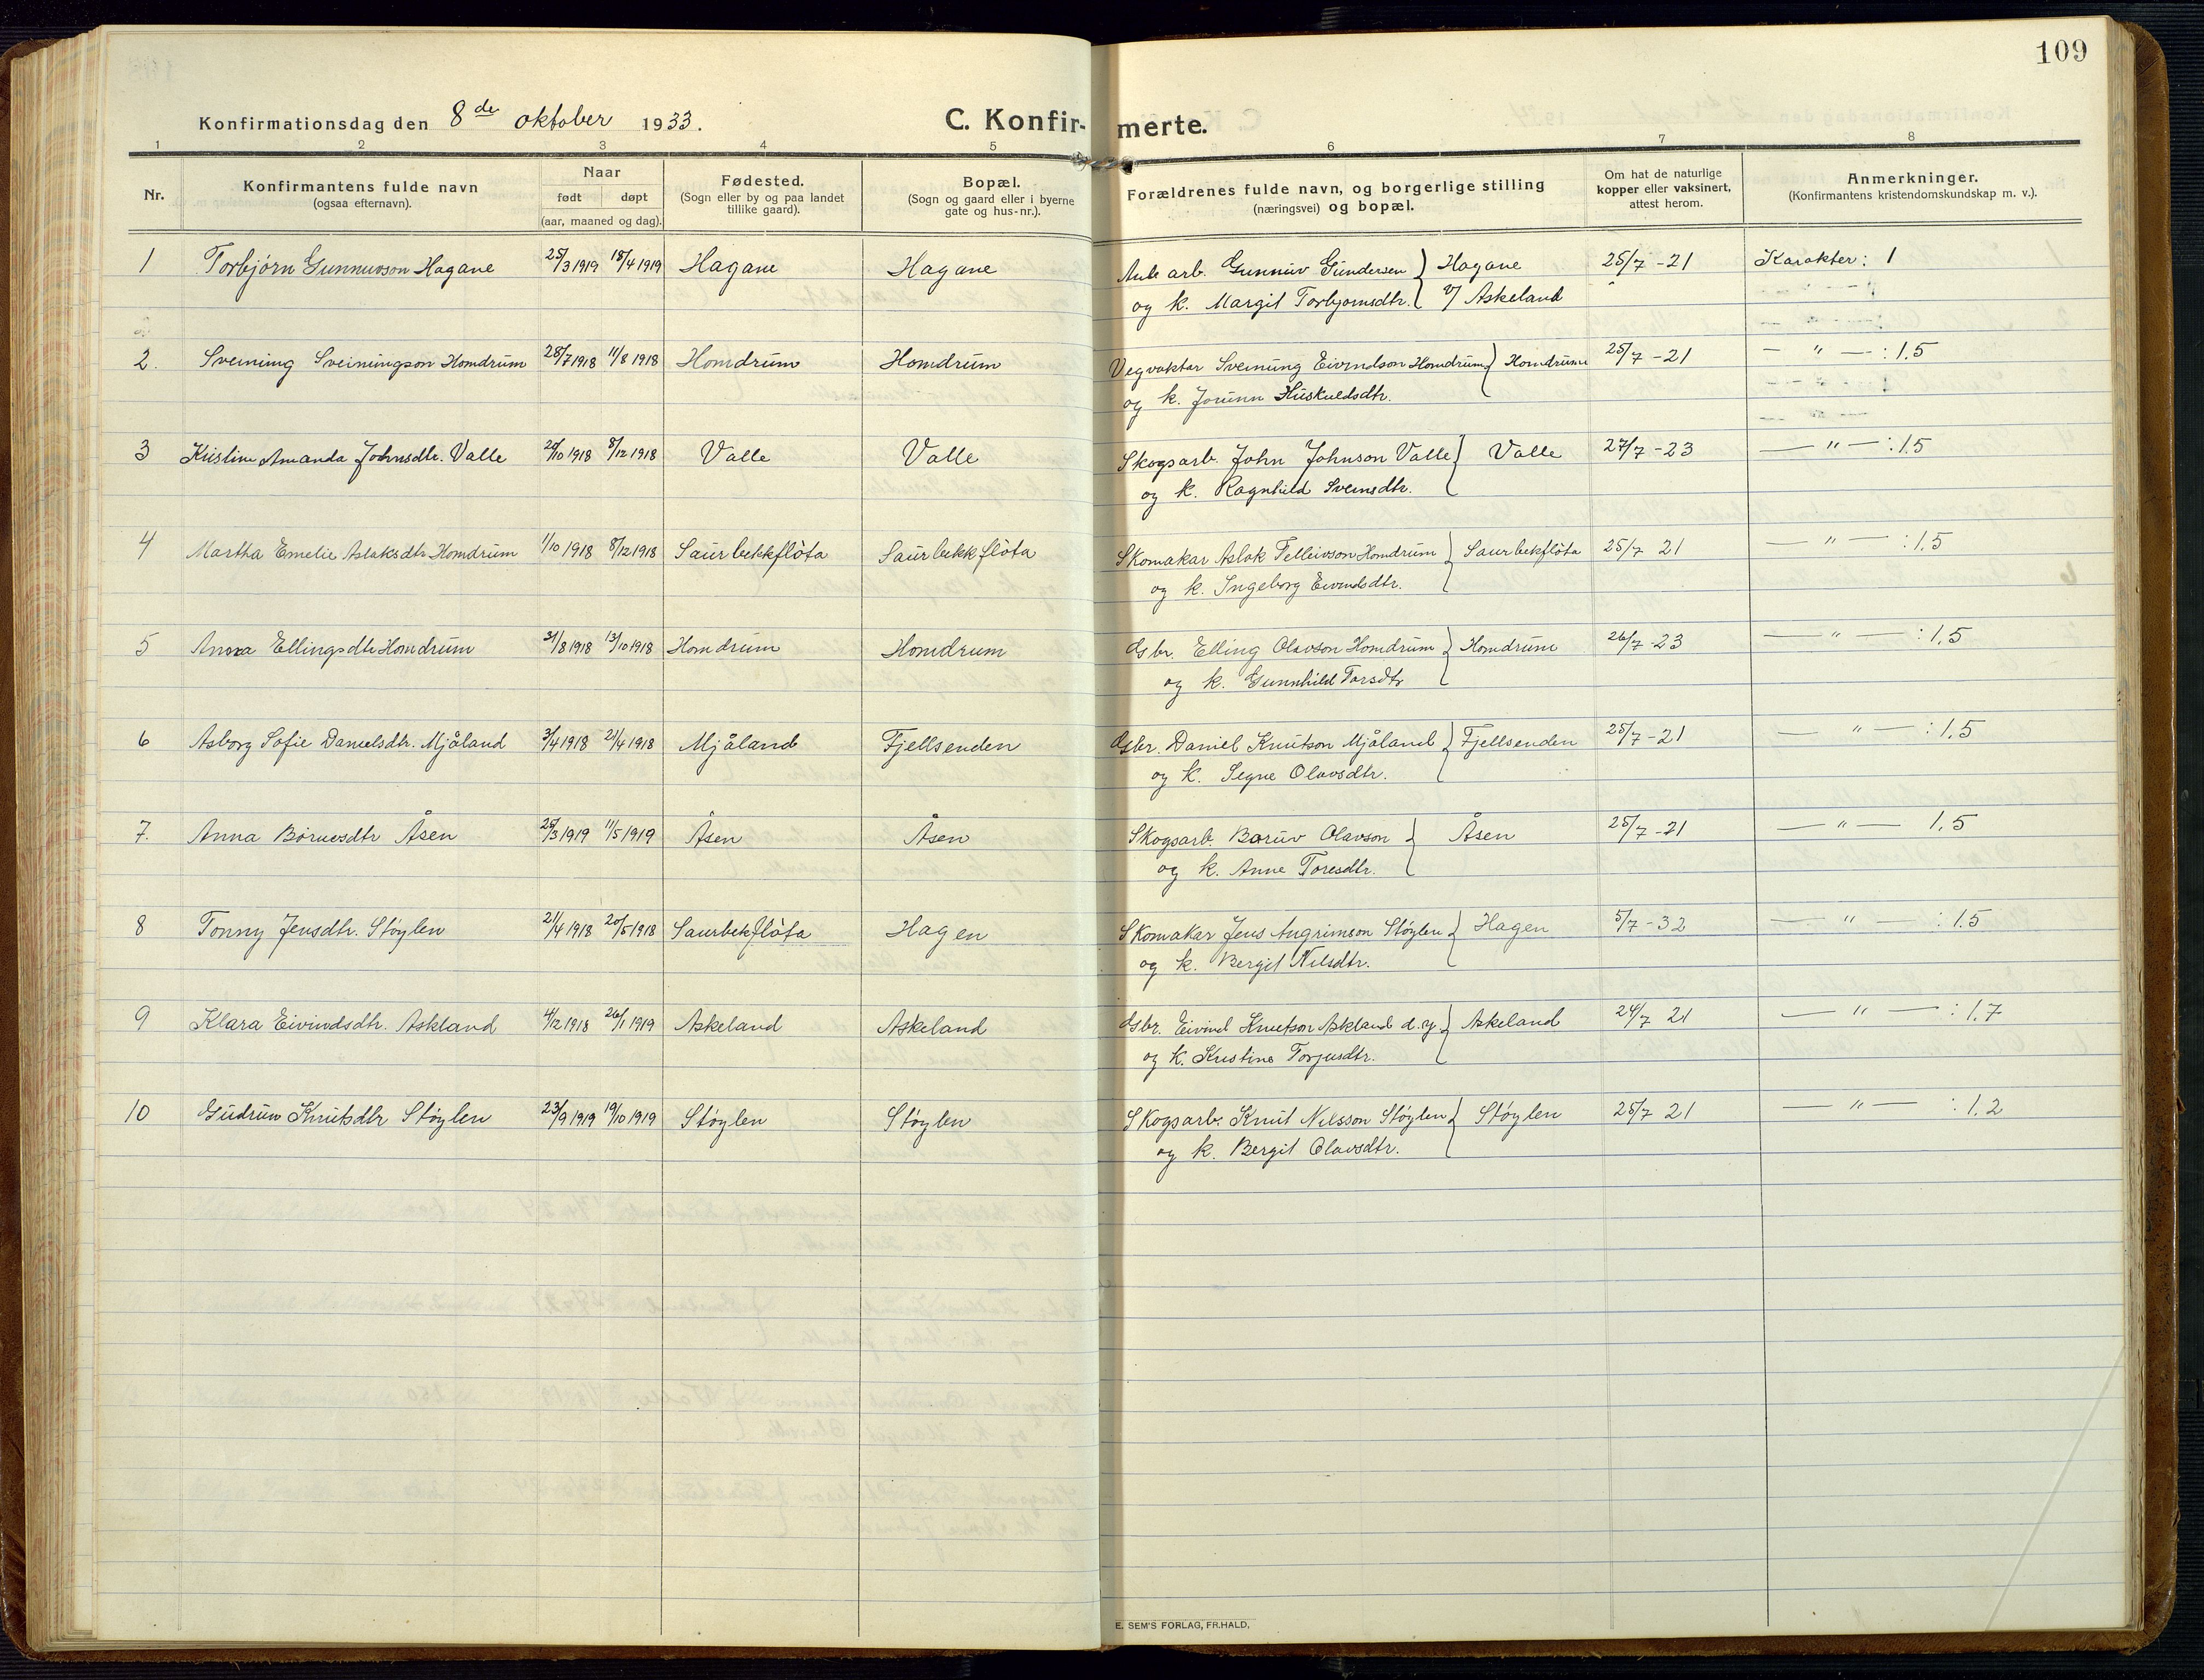 109
Konfirmationsdag den 8de oktober 1933.
C. Konfirmerte.
1 2 3 4 5 6 7 8
Nr.
Konfirmantens fulde navn
(ogsaa efternavn).
Naar
født døpt
(aar, maaned og dag).
Fødested.
(Sogn eller by og paa landet
tillike gaard).
Bopæl.
(Sogn og gaard eller i byerne
gate og hus-nr.).
Forældrenes fulde navn, og borgerlige stilling
(næringsvei) og bopæl.
Om hat de naturlige
kopper eller vaksinert,
attest herom.
Anmerkninger.
(Konfirmantens kristendomskundskap m. v.).
1 Torbjørn Gunnuvson Hagane 25/3 1919 18/4 1919 Hagane Hagane arb. Gunnuv Gundersen } Hagane 25/7-21 Karakter: 1
og k. Margit Torbjørnsdtr. v/ Askeland
2. Sveining Sveiningson Homdrum 28/7 1918 11/8 1918 Homdrum Homdrum Vegvaktar Sveinung Eivindson Homdrum } Homdrum 25/7-21 — " — : 1.5
og k. Jorunn Huskuldsdtr.
3 Kristine Amanda Johnsdtr. Valle 20/10 1918 8/12 1918 Valle Valle Skogsarb. John Johnson Valle } Valle 27/7-23 — " — : 1.5
og k. Ragnhild Sveinsdtr.
4 Martha Emelie Aslaksdtr Homdrum 1/10 1918 8/12 1918 Saurbekkflòta Saurbekkflòta Skomakar Aslak Telleivson Homdrum } Saurbekflòta 25/7 21 — " — : 1.5
og k. Ingeborg Eivindsdtr.
5 Anna Ellingsdtr Homdrum 31/8 1918 13/10 1918 Homdrum Homdrum Gsbr. Elling Olavson Homdrum } Homdrum 26/7-23 — " — : 1.5
og k. Gunnhild Torsdtr
6 Asborg Sofie Danielsdtr. Mjåland 3/4 1918 21/4 1918 Mjåland Fjellsenden Gsbr. Daniel Knutson Mjåland } Fjellsenden 25/7-21 — " — : 1.5
og k. Segne Olavsdtr.
7. Anna Børuvsdtr Åsen 25/3 1919 11/5 1919 Åsen Åsen Skogsarb. Børuv Olavson } Åsen 25/7-21 — " — 1.5
og k. Anne Toresdtr.
8 Tonny Jensdtr. Støylen 21/4 1918 20/5 1918 Saurbekflòta Hagen Skomakar Jens Angrimson Støylen } Hagen 5/7-32 — " — : 1.5
og k. Bergit Nilsdtr.
9 Klara Eivindsdtr. Askland 4/12 1918 26/1 1919 Askeland Askeland Gsbr. Eivind Knutson Askland d.y. } Askeland 24/7 21 — " — : 1.7
og k. Kristine Torjusdtr.
10 Gudrun Knutsdtr Støylen 23/9 1919 19/10 1919 Støylen Støylen Skogsarb. Knut Nilsson Støylen } Støylen 25/7 21 — " — : 1.2
og k. Bergit Olavsdtr.
E. SEM'S FORLAG, FR.HALD,